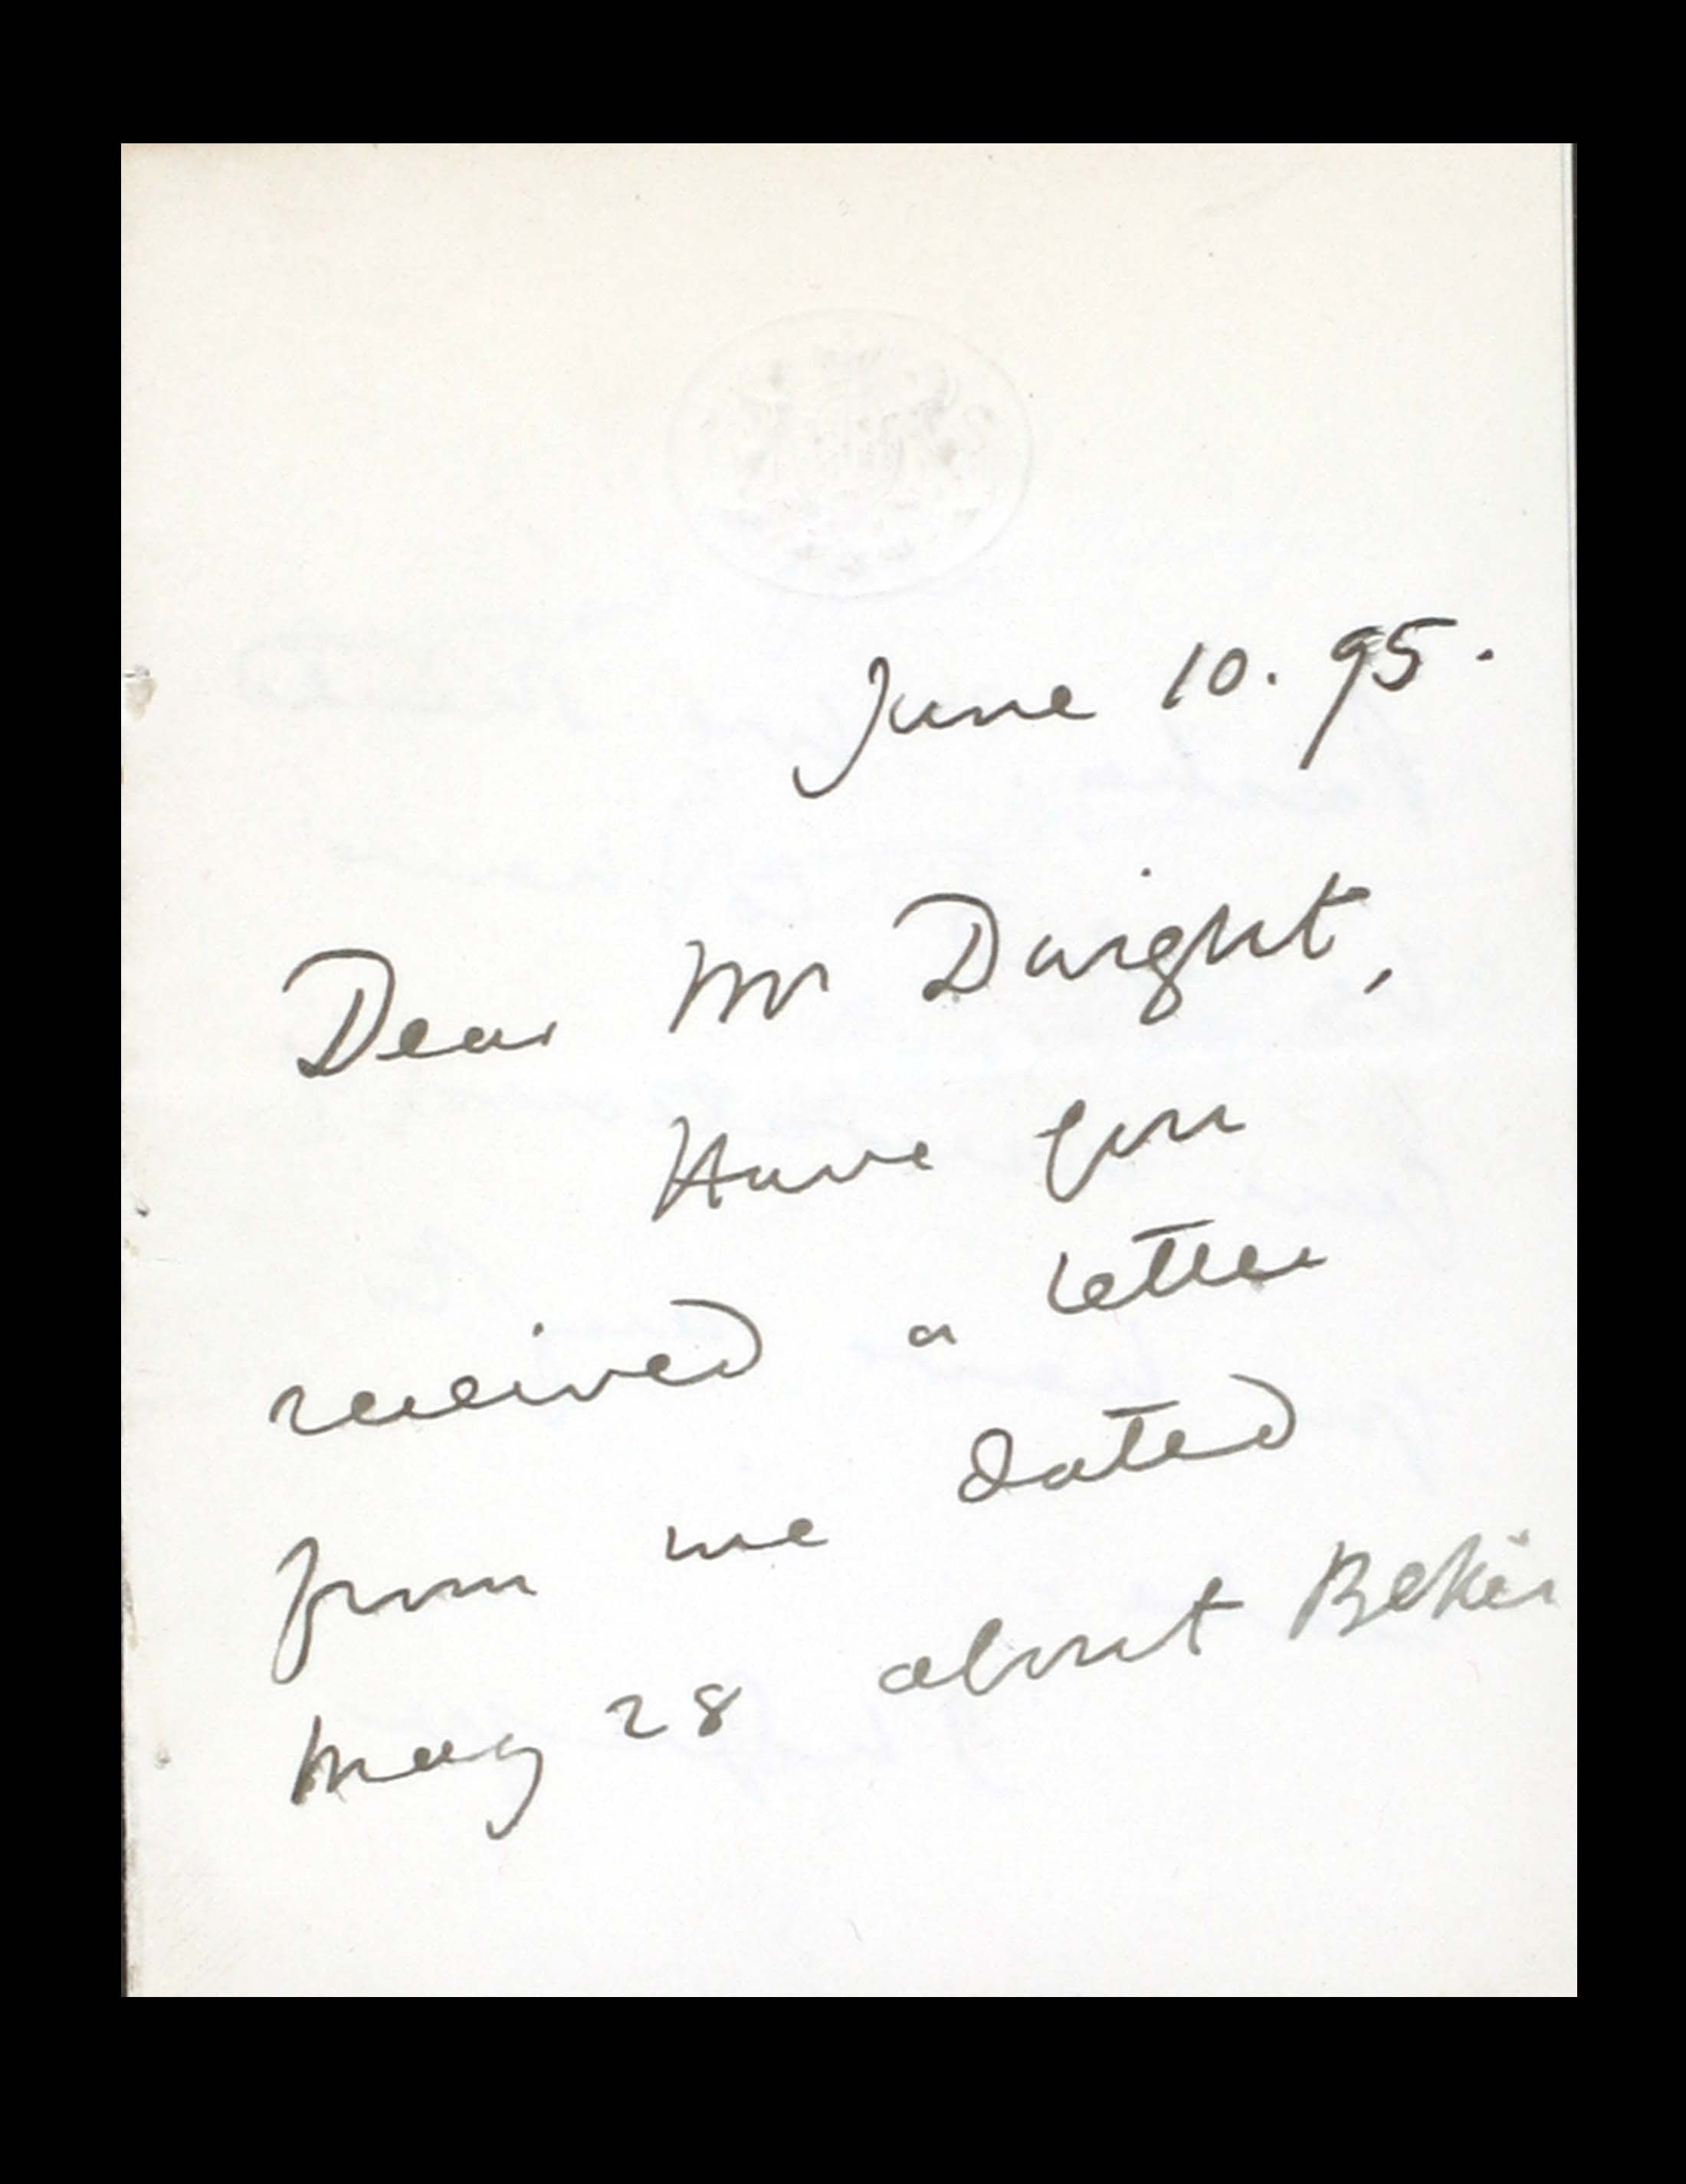 June 10. 95.
Dear Mr Dwight,
Have you
received a letter
from me dated
May 28 about Bekir